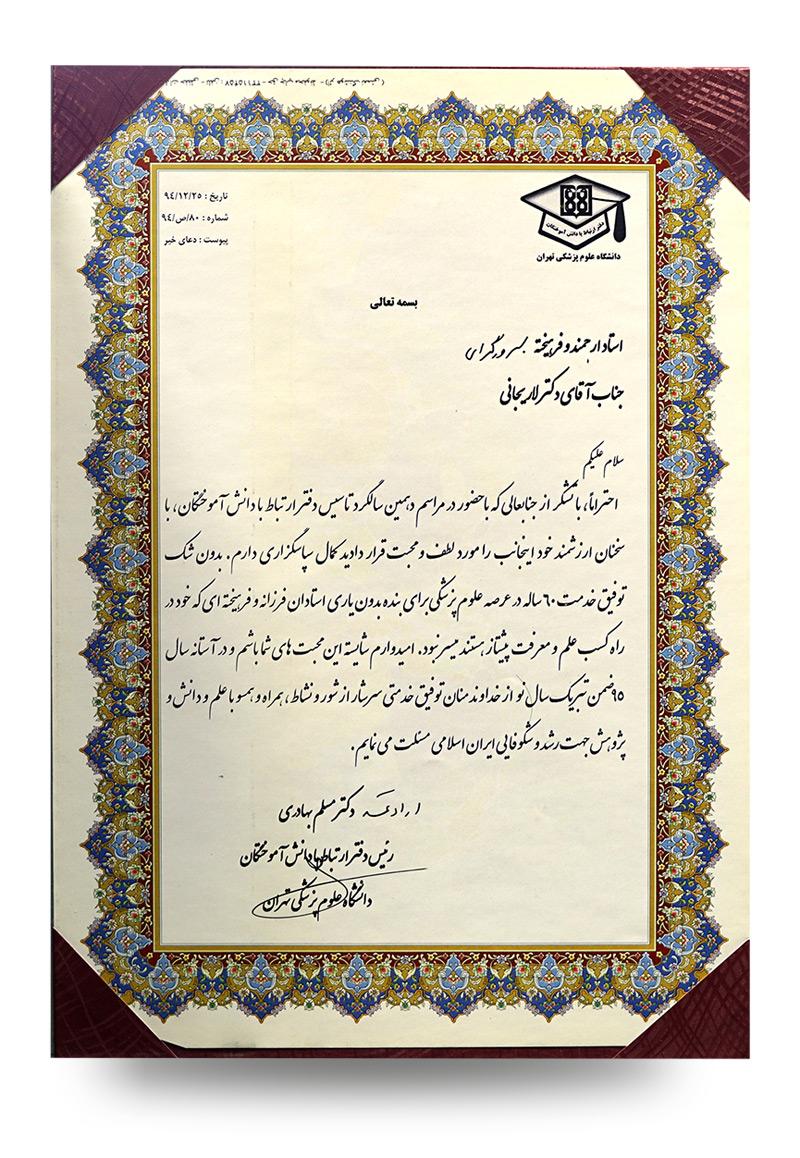 تاریخ : ۹۴/۱۲/۲۵
شماره : ۸۰/ص/۹۴
پیوست : دعای خیر
دفتر ارتباط با دانش آموختگان
دانشگاه علوم پزشکی تهران
بسمه تعالی
استاد ارجمند و فرهیخته
جناب آقای دکتر لاریجانی
سلام علیکم
احتراماً، با تشکر از جنابعالی که با حضور در مراسم دهمین سالگرد تاسیس دفتر ارتباط با دانش آموختگان، با
سخنان ارزشمند خود اینجانب را مورد لطف و محبت قرار دادید کمال سپاسگزاری دارم. بدون شک
توفیق خدمت ۶۰ ساله در عرصه علوم پزشکی برای بنده بدون یاری استادان فرزانه و فرهیخته ای که خود در
راه کسب علم و معرفت پیشتاز هستند میسر نبود. امیدوارم شایسته این محبت های شما باشم و در آستانه سال
۹۵ ضمن تبریک سال نو از خداوند منان توفیق خدمتی سرشار از شور و نشاط، همراه و همسو با علم و دانش و
پژوهش جهت رشد و شکوفایی ایران اسلامی مسئلت می نمایم.
ارادتمند دکتر مسلم بهادری
رئیس دفتر ارتباط با دانش آموختگان
دانشگاه علوم پزشکی تهران